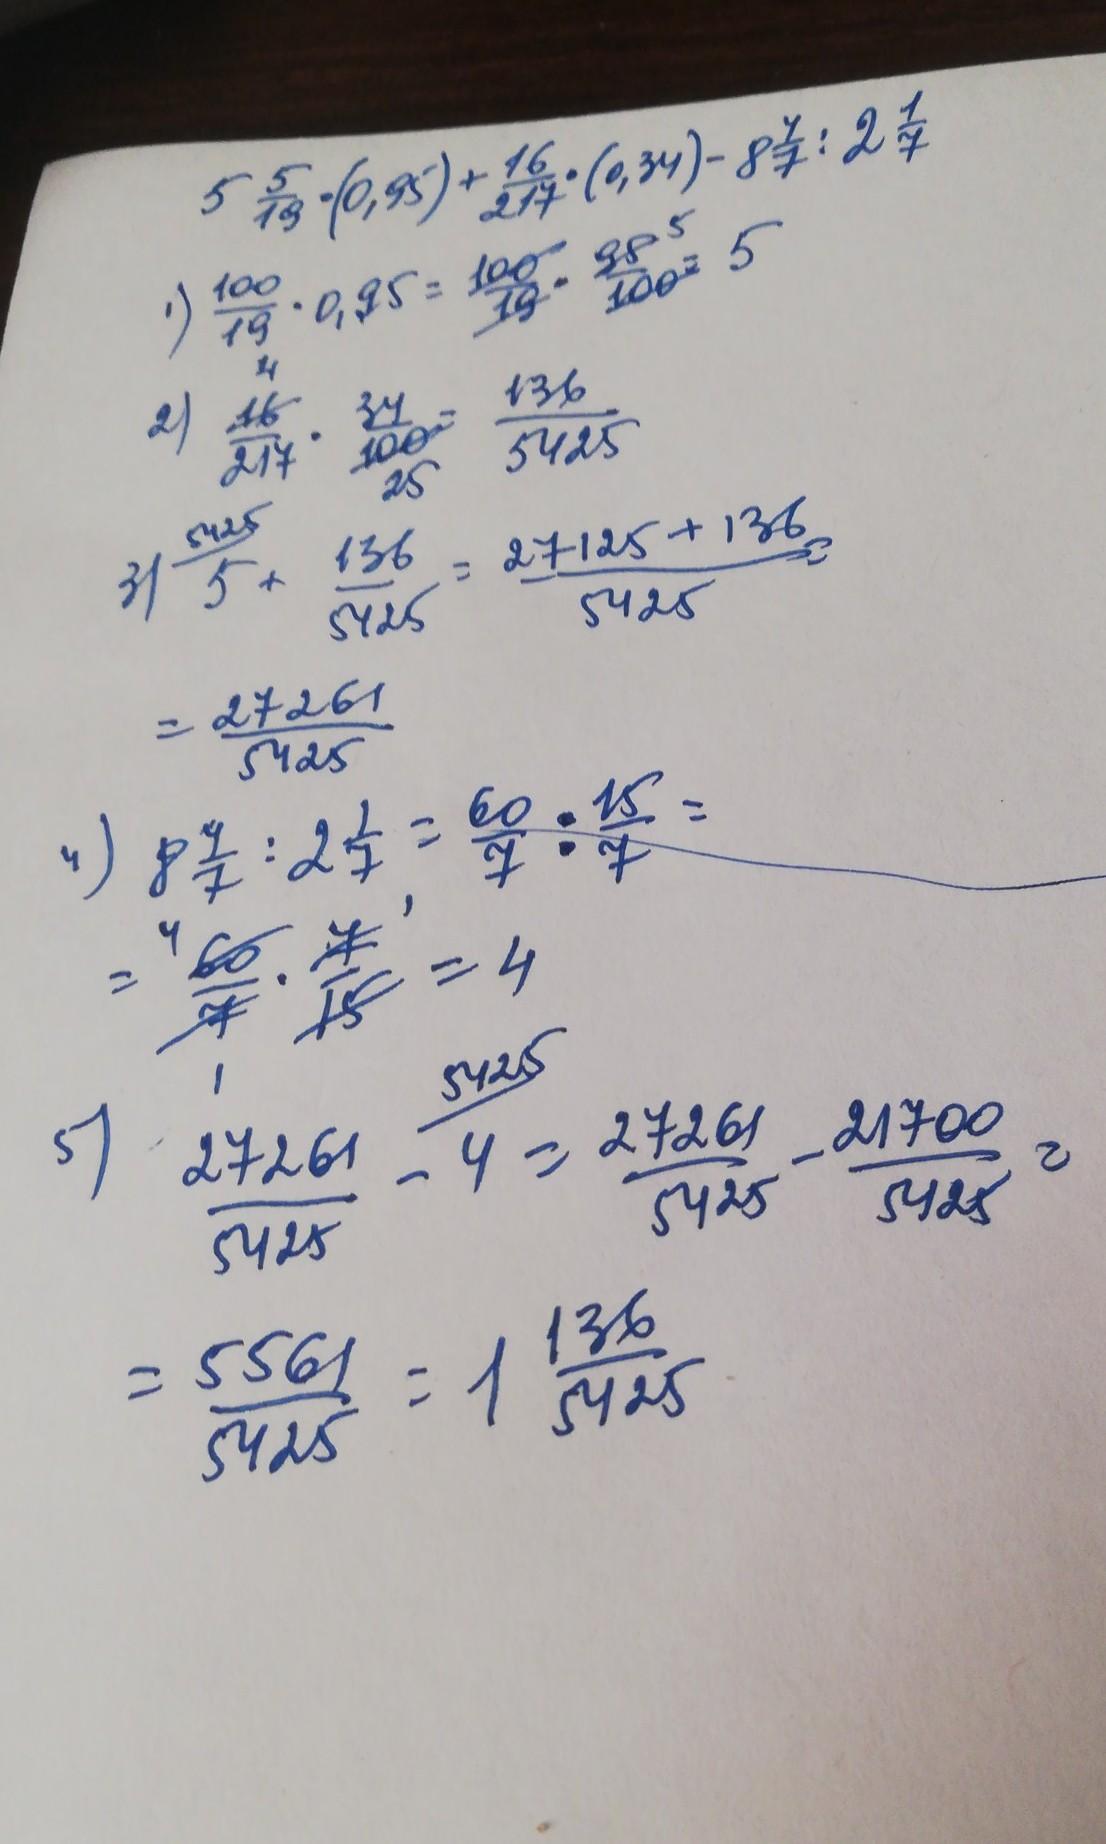 5 5/19 · (0,95) + 16/217 · (0,34) - 8 4/7 : 2 1/7
1) 100/19 · 0,95 = 100/19 · 95/100 = 5 5
2) 4 16/217 · 34/100 25 = 136/5425
3) 5425 5 + 136/5425 = 27125 + 136/5425 =
= 27261/5425
4) 8 4/7 : 2 1/7 = 60/7 : 15/7 =
= 4 60/7 1 · 7/15 1 = 4
5) 27261/5425 - 5425 4 = 27261/5425 - 21700/5425 =
= 5561/5425 = 1 136/5425